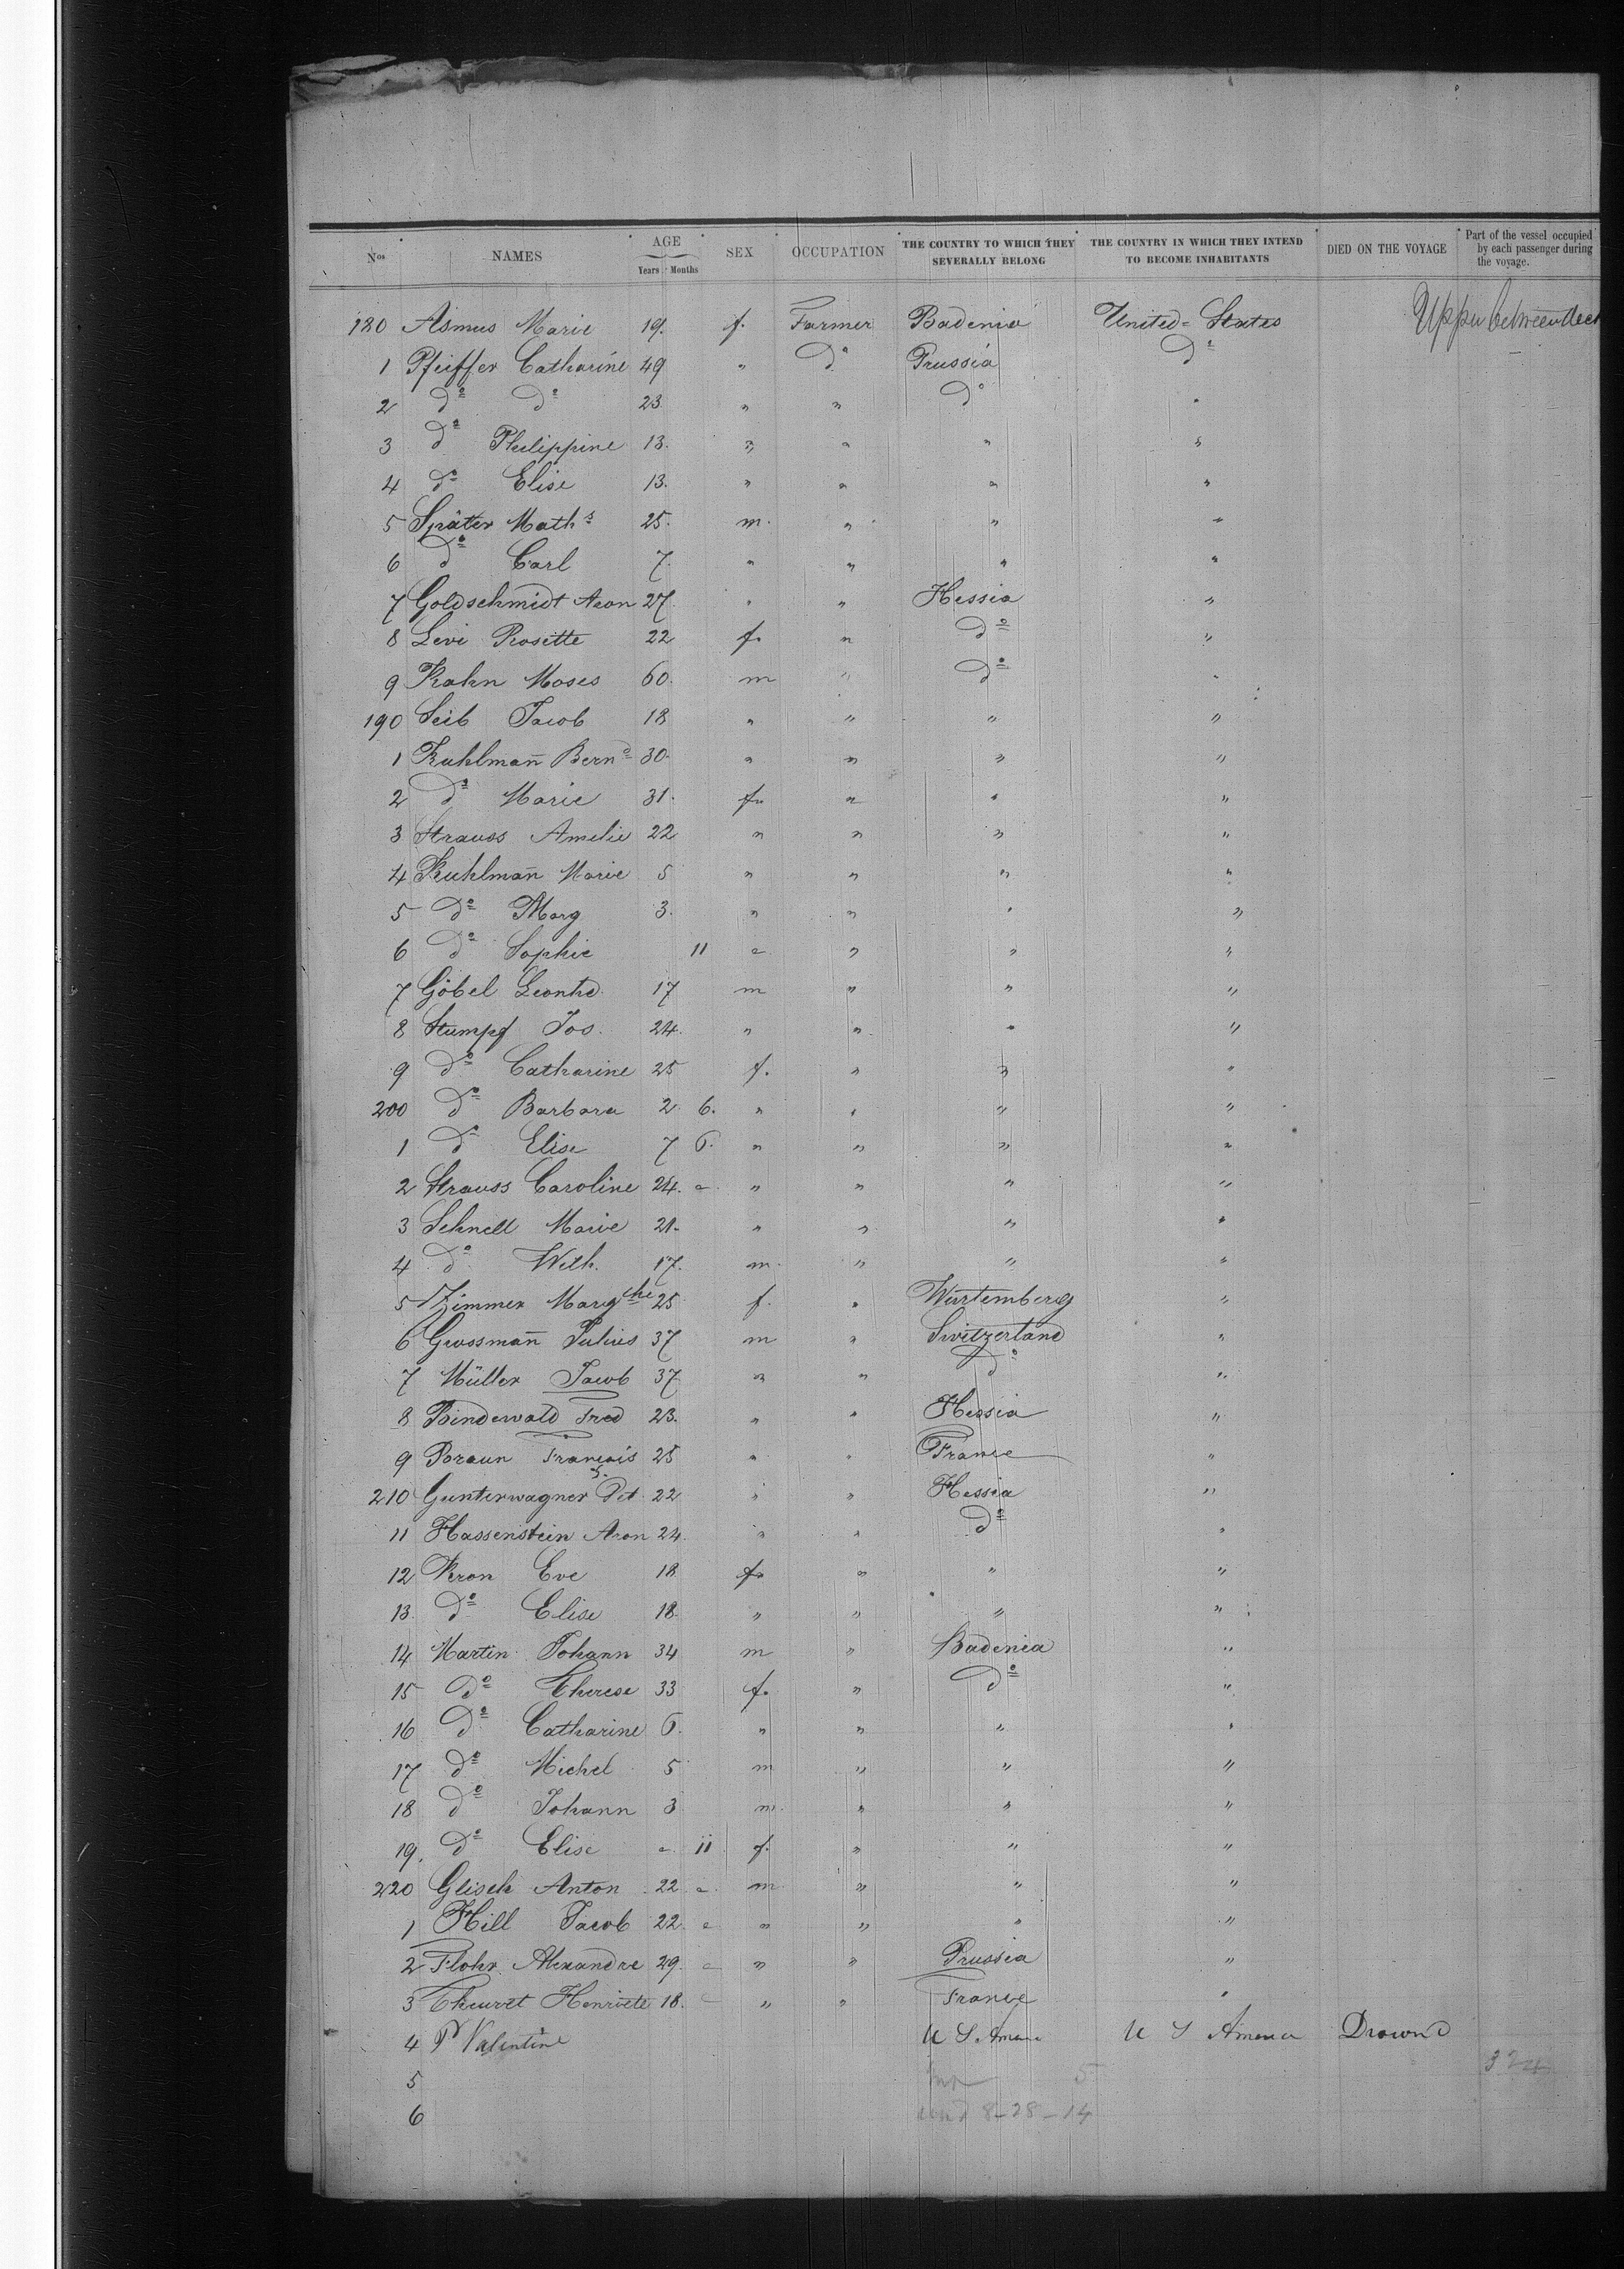 Nos NAMES AGE Years Months SEX OCCUPATION THE COUNTRY TO WHICH THEY SEVERALLY BELONG THE COUNTRY IN WHICH THEY INTEND TO BECOME INHABITANTS DIED ON THE VOYAGE Part of the vessel occupied by each passenger during the voyage.
180 Asmus Marie 19. f. Farmer Badenia United-States Upper betweendeck
1 Pfeiffer Catharine 49 " do Prussia do
2 do do 23 " " do "
3 do Philippine 13. " " " "
4 do Elise 13. " " " "
5 Später Maths 25. m. " " "
6 do Carl 7. " " " "
7 Goldschmidt Aron 27 " " Hessia "
8 Levi Rosette 22 f. " do "
9 Kahn Moses 60. m " do "
190 Seib Jacob 18 " " " "
1 Kuhlmañ Bernd 30. " " " "
2 do Marie 31. f. " " "
3 Strauss Amelie 22 " " " "
4 Kuhlmañ Marie 5 " " " "
5 do Marg 3. " " " "
6 do Sophie 11 " " " "
7 Göbel Leonhd 17 m " " "
8 Stumpf Jos. 24. " " " "
9 do Catharine 25 f. " " "
200 do Barbara 2 6. " " " "
1 do Elise 7 6. " " " "
2 Strauss Caroline 24. " " " " "
3 Schnell Marie 21. " " " "
4 do Wilh. 17. m. " " "
5 Zimmer Margthe 25 f. " Würtemberg "
6 Grossmañ Julius 37 m " Switzerland "
7 Müller Jacob 37 " " do "
8 Bindewald Fred 23. " " Hessia "
9 Braun François 25 " " France "
210 Gunterwagner Pet 22 " " Hessia "
11 Hassenstein Aron 24. " " do "
12 Kron Eve 18 f. " " "
13. do Elise 18. " " " "
14 Martin Johann 34 m " Badenia "
15 do Therese 33 f. " do "
16 do Catharine 6. " " " "
17 do Michel 5 m " " "
18 do Johann 3 m. " " "
19. do Elise " 11 f. " " "
220 Glisch Anton 22 " m " " "
1 Hill Jacob 22 " " " " "
2 Flohr Alexandre 29. " " " Prussia "
3 Theuret Henriete 18. " " " France "
4 Valentine U S Amer U S America Drownd
5 5 324
6 8-28-14